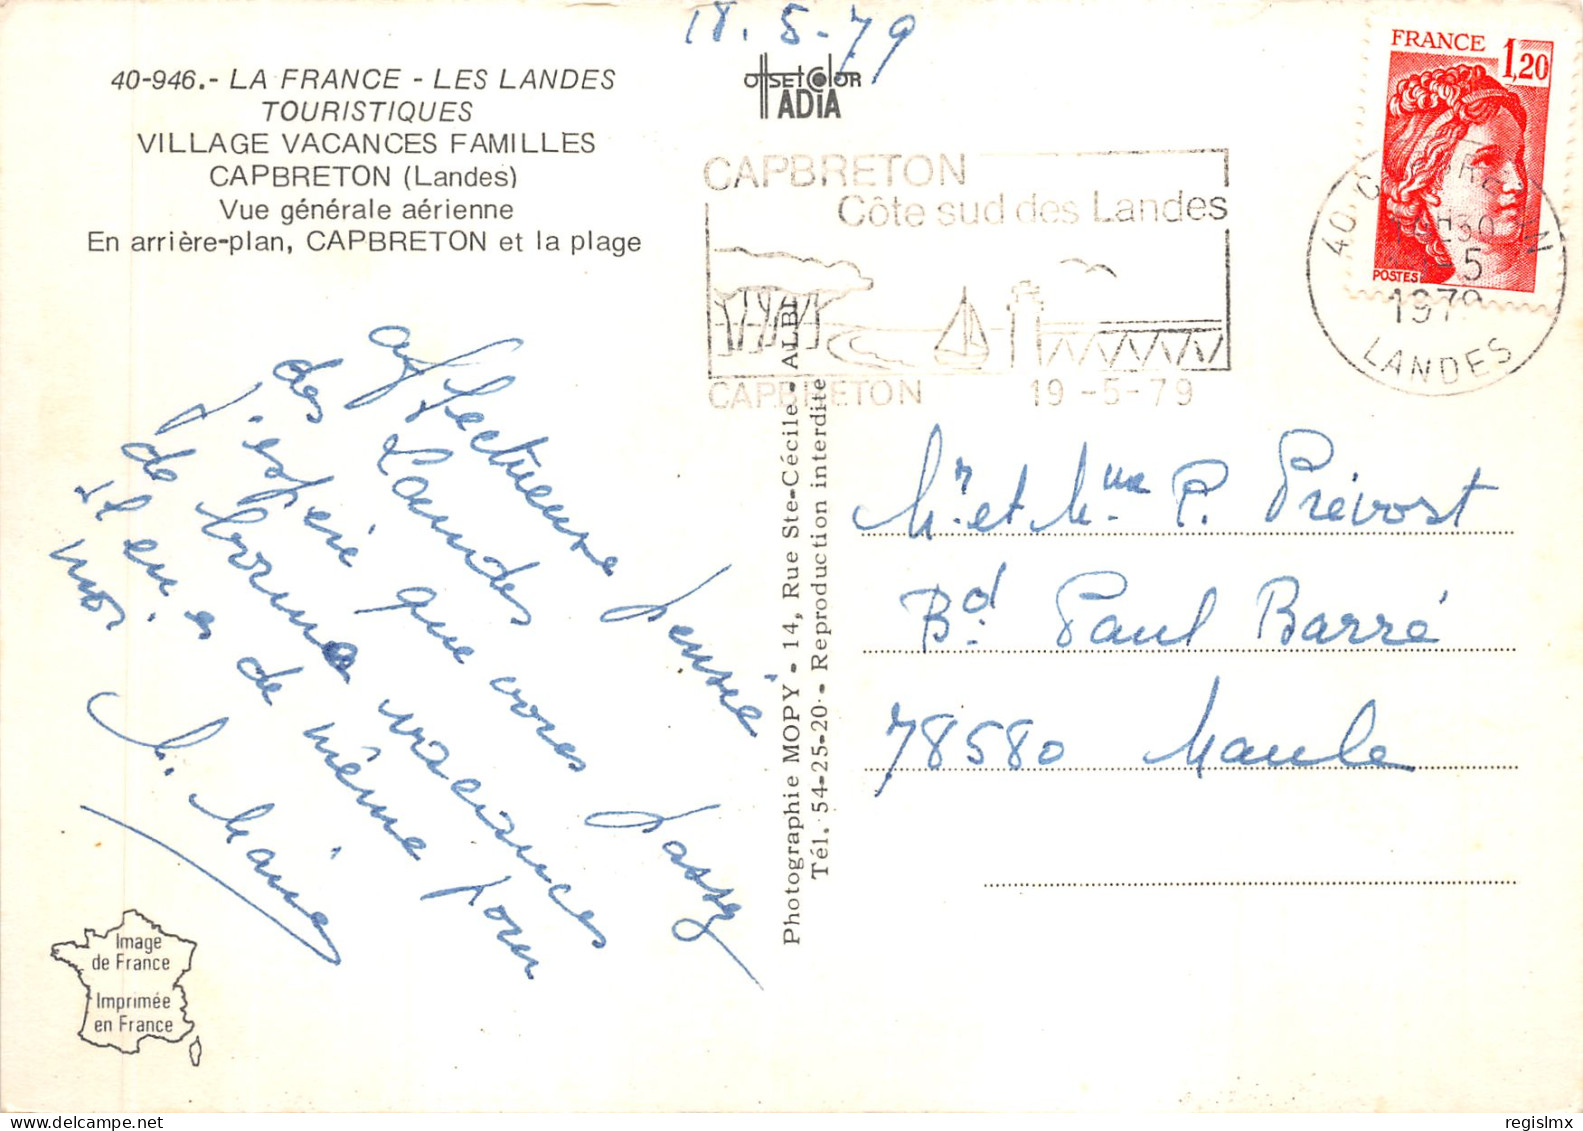 18.5-79
40-946.- LA FRANCE - LES LANDES
TOURISTIQUES
VILLAGE VACANCES FAMILLES
CAPBRETON (Landes)
Vue générale aérienne
En arrière-plan, CAPBRETON et la plage
OffSET COLOR
ADIA
FRANCE 1,20
POSTES
CAPBRETON
Côte sud des Landes
CAPBRETON 19-5-79
40 CAPBRETON
H30
-5
1979
LANDES
affectueuse pensée
des Landes
j'espère que vous passez
de bonnes vacances
Il en es de même pour
nos.
Photographie MOPY - 14, Rue Ste-Cécile - ALBI
Tél. 54-25-20 - Reproduction interdite
Mr et Mme P. Prévost
Bd. Paul Barré
78580 Maule
Image
de France
Imprimée
en France
regislmx